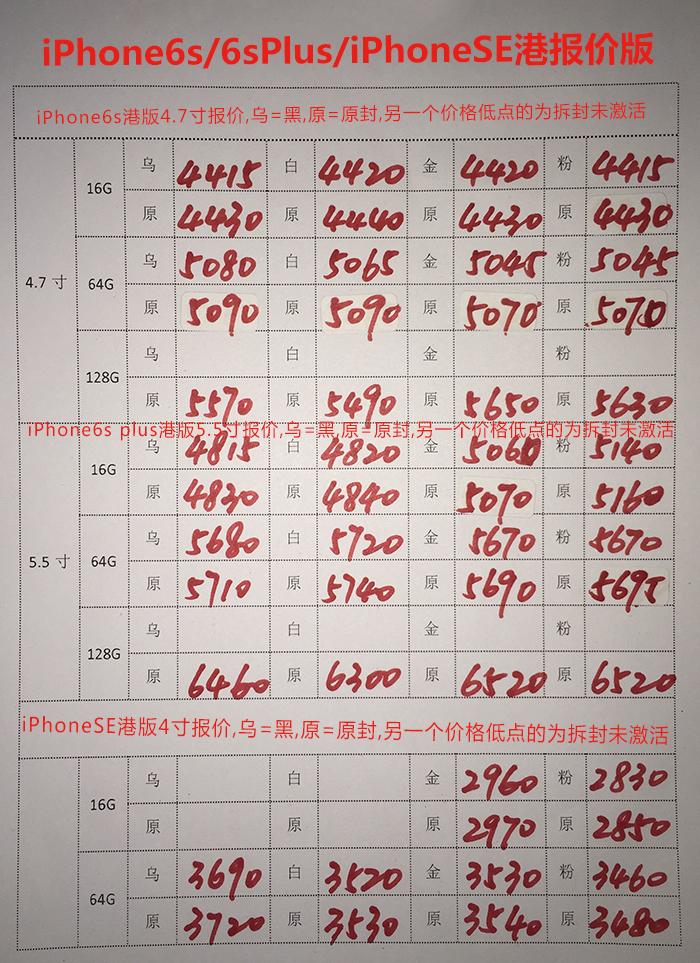 iPhone6s/6sPlus/iPhoneSE港报价版
iPhone6s港版4.7寸报价,乌=黑,原=原封,另一个价格低点的为拆封未激活
4.7 寸 16G 乌 4415 白 4420 金 4420 粉 4415
原 4430 原 4440 原 4430 原 4430
64G 乌 5080 白 5065 金 5045 粉 5045
原 5090 原 5090 原 5070 原 5070
128G 乌 白 金 粉
原 5570 原 5490 原 5650 原 5630
iPhone6s plus港版5.5寸报价,乌=黑,原=原封,另一个价格低点的为拆封未激活
5.5 寸 16G 乌 4815 白 4820 金 5060 粉 5140
原 4830 原 4840 原 5070 原 5160
64G 乌 5680 白 5720 金 5670 粉 5670
原 5710 原 5740 原 5690 原 5695
128G 乌 白 金 粉
原 6460 原 6300 原 6520 原 6520
iPhoneSE港版4寸报价,乌=黑,原=原封,另一个价格低点的为拆封未激活
16G 乌 白 金 2960 粉 2830
原 原 原 2970 原 2850
64G 乌 3690 白 3520 金 3530 粉 3460
原 3720 原 3530 原 3540 原 3480